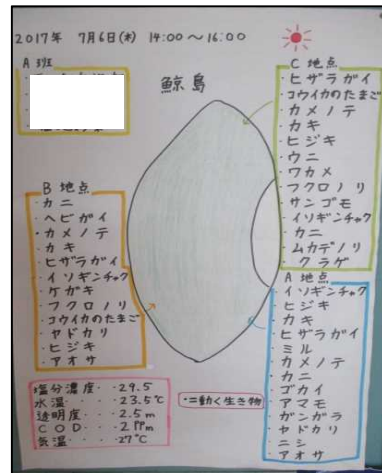 2017年 7月6日(木) 14:00～16:00
A班
鯨島
C 地点
・ヒザラガイ
・コウイカのたまご
・カメノテ
・カキ
・ヒジキ
・ウニ
・ワカメ
・フクロノリ
・サンゴモ
・イソギンチャク
・カニ
・ムカデノリ
・クラゲ
B 地点
・カニ
・ヘビガイ
・カメノテ
・カキ
・ヒザラガイ
・イソギンチャク
・ケガキ
・フクロノリ
・コウイカのたまご
・ヤドカリ
・ヒジキ
・アオサ
A 地点
・イソギンチャク
・ヒジキ
・カキ
・ヒザラガイ
・ミル
・カメノテ
・カニ
・ゴカイ
・アマモ
・ガンガラ
・ヤドカリ
・ニシ
・アオサ
塩分濃度・・29.5
水温・・・・23.5℃
透明度・・・2.5m
COD・・・2PPm
気温・・・・27℃
・=動く生き物